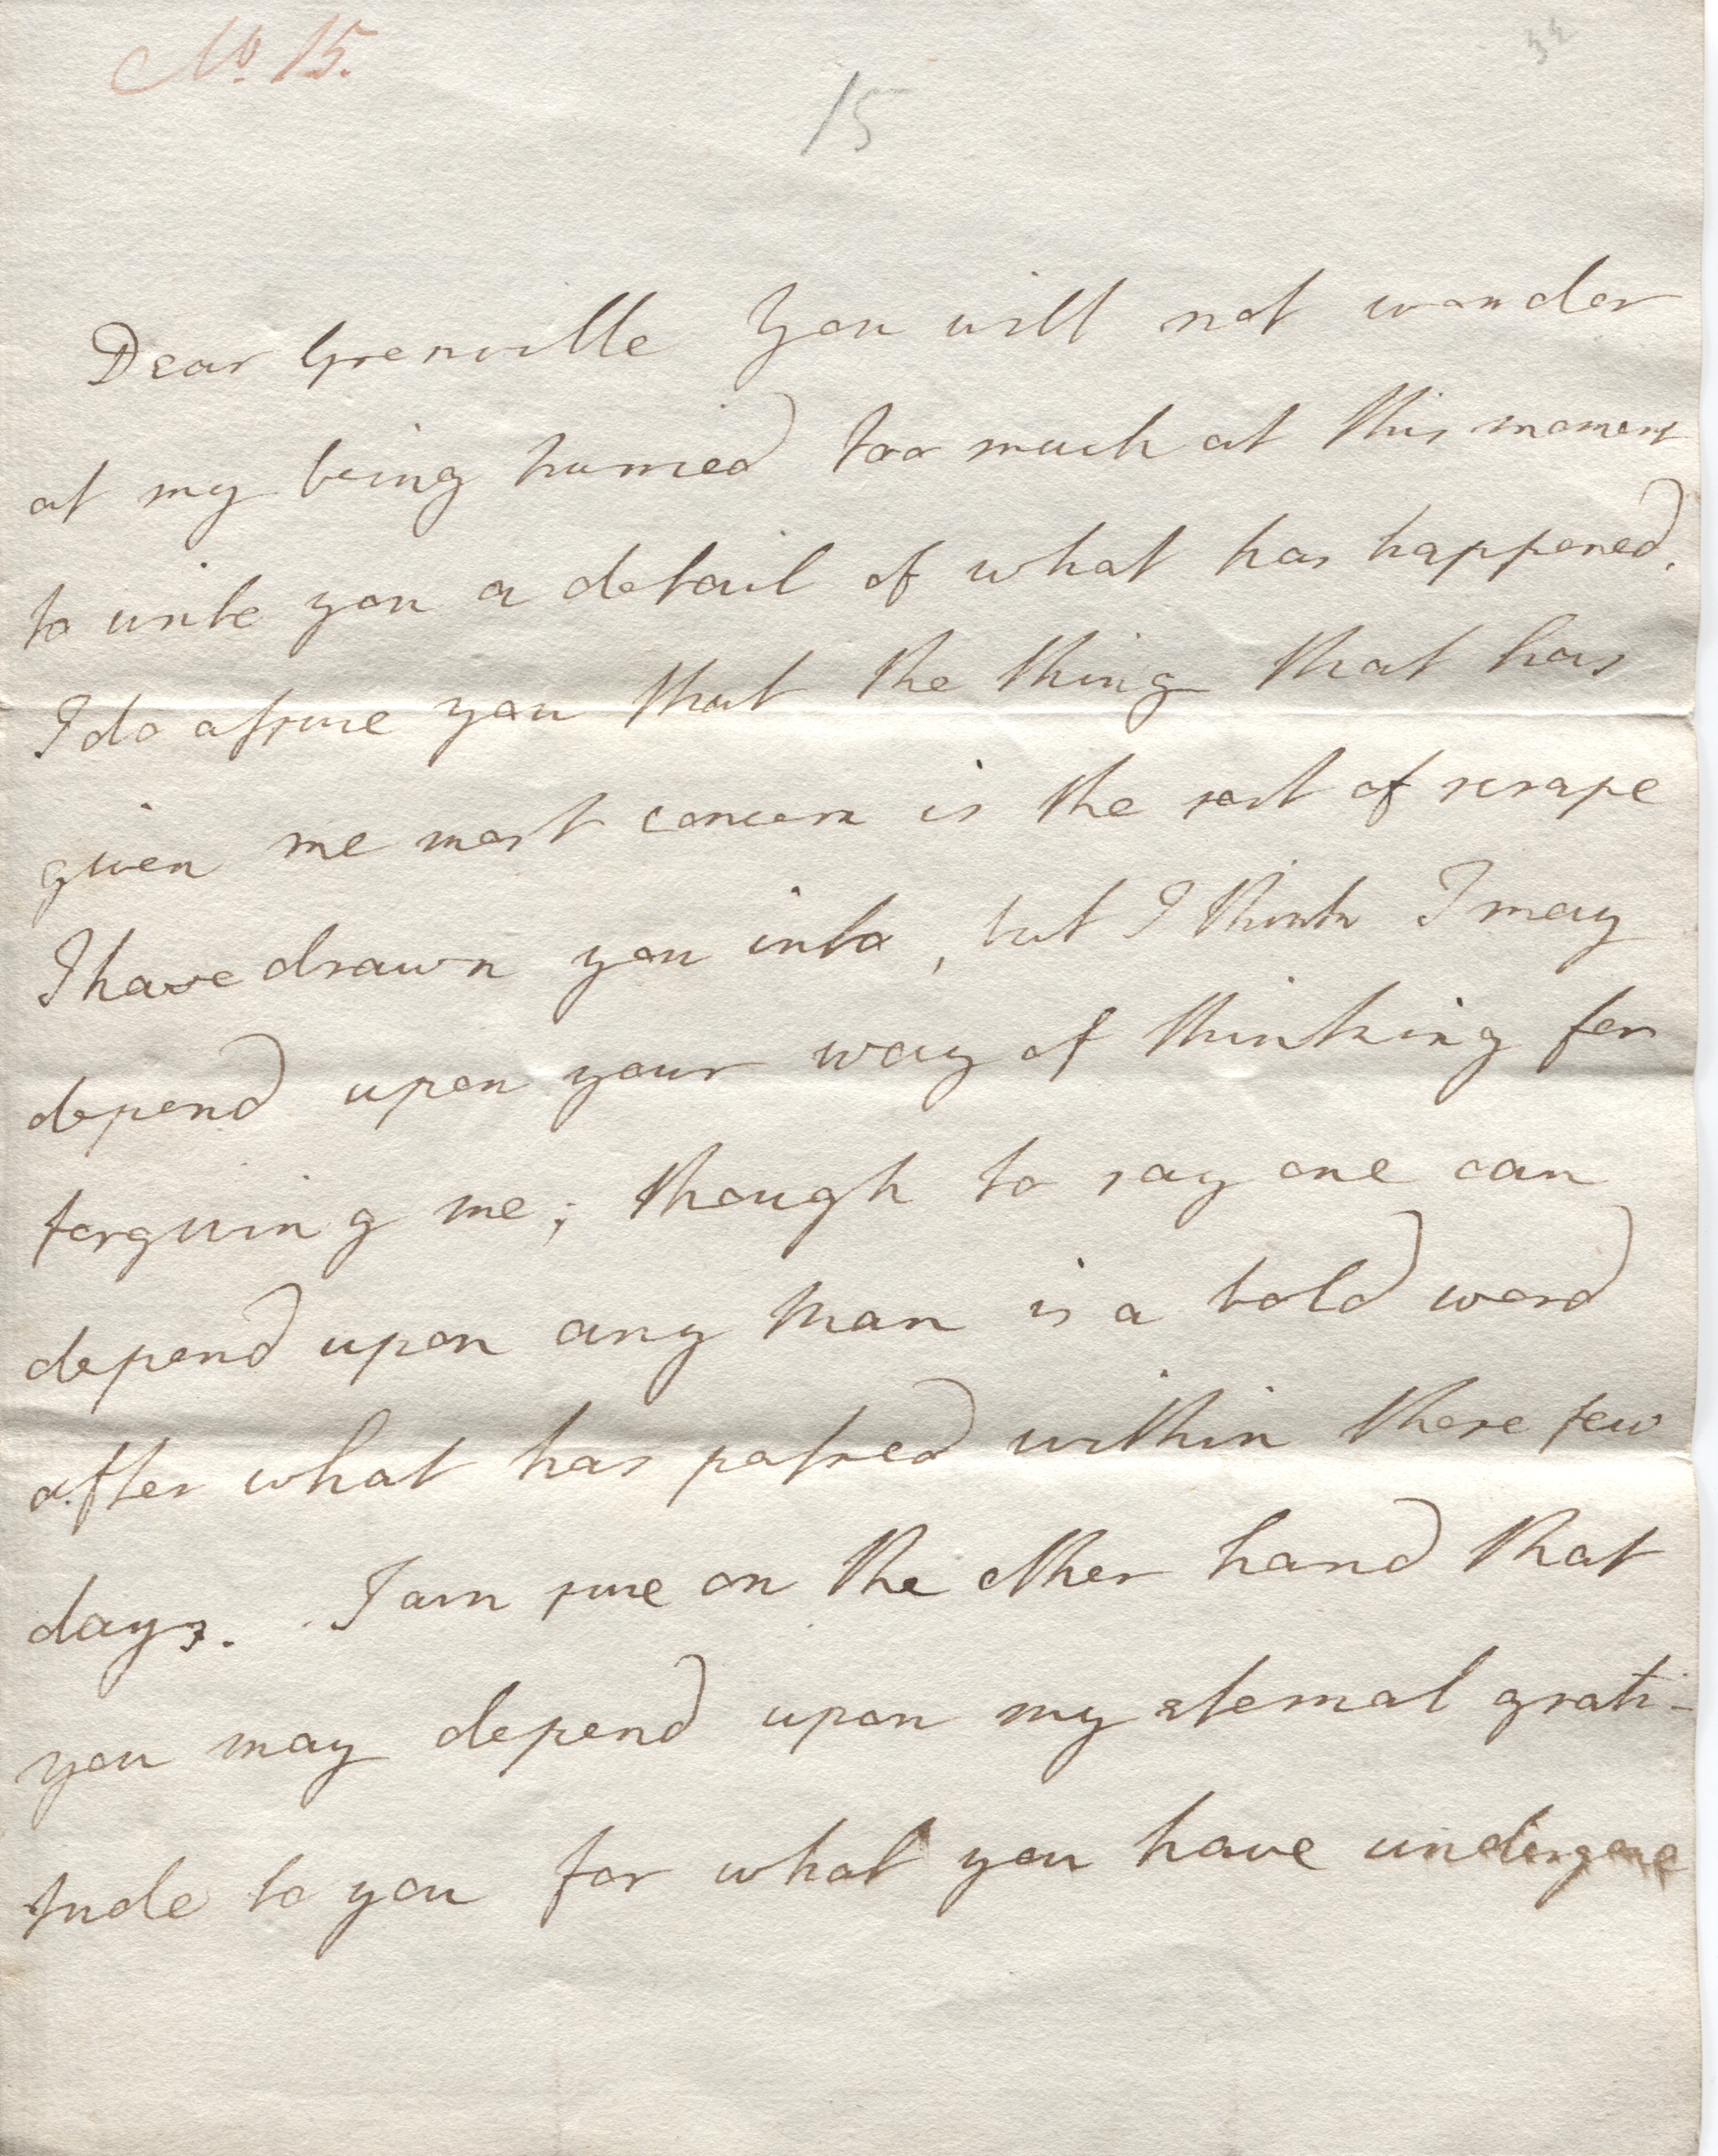 No. 15.
32
15
Dear Grenville You will not wonder
at my being hurried too much at this moment
to write you a detail of what has happened.
I do assure you that the thing that has
given me most concern is the sort of scrape
I have drawn you into, but I think I may
depend upon your way of thinking for
forgiving me; though to say one can
depend upon any Man is a bold word
after what has passed within these few
days. I am sure on the other hand that
you may depend upon my eternal grati-
tude to you for what you have undergone